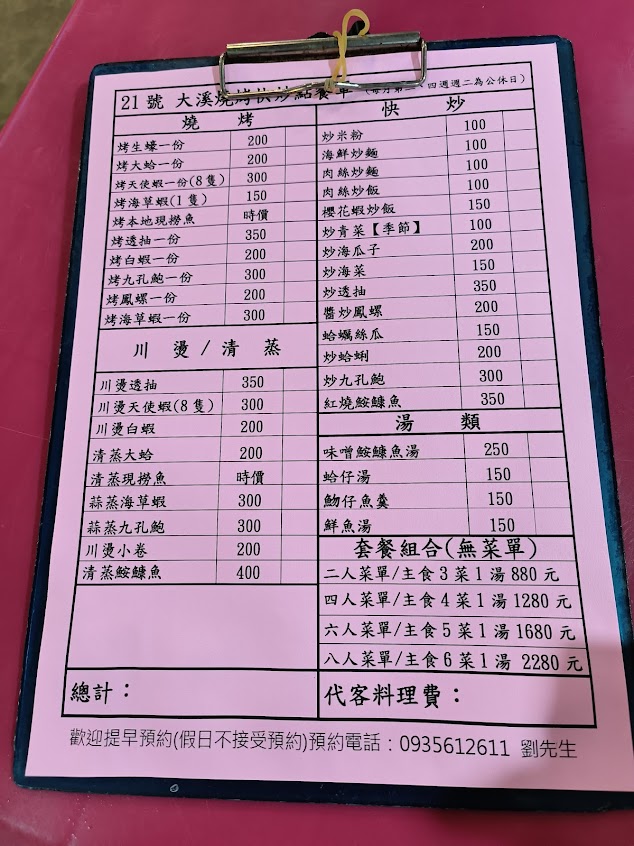 21號 大溪燒烤快炒點餐單 (每月第二、四週週二為公休日)
燒 烤
烤生蠔一份 200
烤大蛤一份 200
烤天使蝦一份(8隻) 300
烤海草蝦(1隻) 150
烤本地現撈魚 時價
烤透抽一份 350
烤白蝦一份 200
烤九孔鮑一份 300
烤鳳螺一份 200
烤海草蝦一份 300
川 燙 / 清 蒸
川燙透抽 350
川燙天使蝦(8隻) 300
川燙白蝦 200
清蒸大蛤 200
清蒸現撈魚 時價
蒜蒸海草蝦 300
蒜蒸九孔鮑 300
川燙小卷 200
清蒸鮟鱇魚 400
總計：
快 炒
炒米粉 100
海鮮炒麵 100
肉絲炒麵 100
肉絲炒飯 100
櫻花蝦炒飯 150
炒青菜【季節】 100
炒海瓜子 200
炒海菜 150
炒透抽 350
醬炒鳳螺 200
蛤蠣絲瓜 150
炒蛤蜊 200
炒九孔鮑 300
紅燒鮟鱇魚 350
湯 類
味噌鮟鱇魚湯 250
蛤仔湯 150
魩仔魚羹 150
鮮魚湯 150
套餐組合(無菜單)
二人菜單/主食3菜1湯 880 元
四人菜單/主食4菜1湯 1280 元
六人菜單/主食5菜1湯 1680 元
八人菜單/主食6菜1湯 2280 元
代客料理費：
歡迎提早預約(假日不接受預約)預約電話：0935612611 劉先生